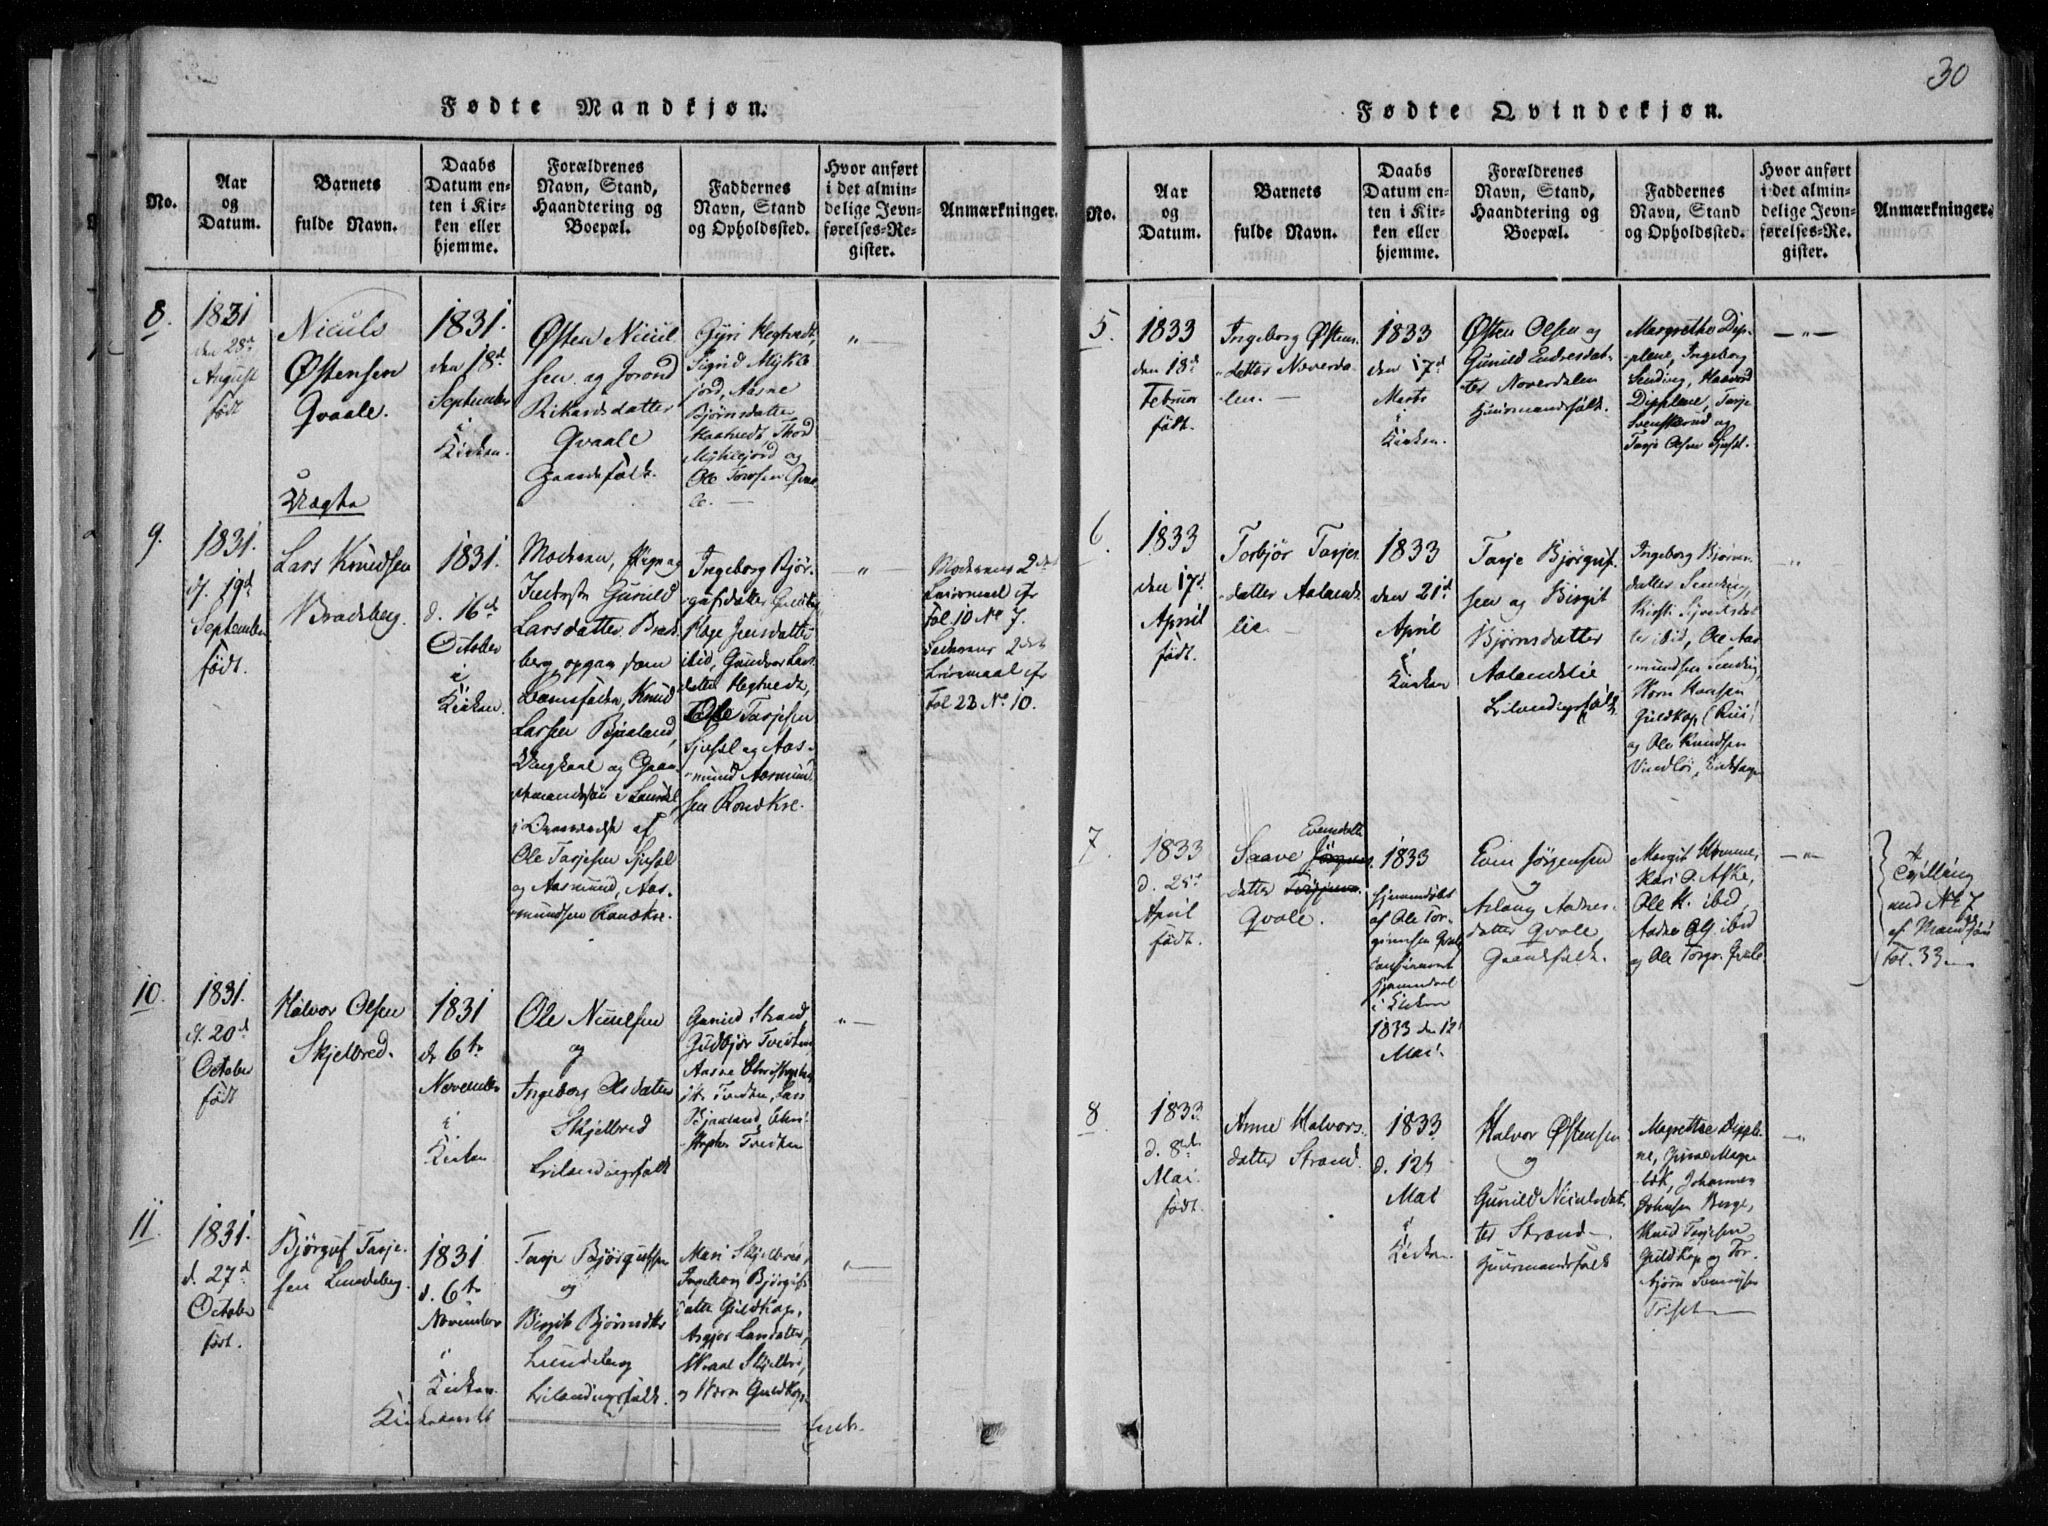 30
Fødte Mandkjøn.
No.
Aar
og
Datum.
Barnets
fulde Navn.
Daabs
Datum en-
ten i Kir-
ken eller
hjemme.
Forældrenes
Navn, Stand,
Haandtering og
Boepæl.
Faddernes
Navn, Stand
og Opholdssted.
Hvor anført
i det almin-
delige Jevn-
førelses-Re-
gister.
Anmærkninger.
8.
1831
den 28de
August
født
Niculs
Østensen
Qvaale.
1831.
den 18d
September
i
Kirken.
Østen Nicul
sen og Jorond
Rikardsdatter
Qvaale
Gaardsfolk.
Gyri Hegtvedt,
Sigrid Mykle
jord, Aasne
Bjørnsdatter
Thord
Myklejord og
Ole
Qvaa
le.
"
Uægte
9.
1831.
d. 19d
September
født.
Lars Knudsen
Bradsberg.
1831.
d. 16d
October
i
Kirken.
Moderen, Pige og
Gunild
Larsdatter Brads
berg, opgav som
Barnefader, Knud
Larsen Bjaaland,
Ungkarl og Gaard
mandssøn
af
Ole Tarjesen
og Aasmund Aas-
mundsen
Ingeborg Bjør
gufsdatter
Jensdatter
ibid, Gundvor Lars
datter Hegtvedt,
Ole Tarjesen
og Aas-
mund Aasmund
sen
"
Moderens 2det
Leiermaal cfr
Fol 10 No 7.
Faderens 2det
Leiermaal cfr
Fol 22 No 10.
10.
1831.
d. 20d
October
født
Halvor Olsen
Skjelbred.
1831
d. 6te
November
i
Kirken
Ole Niculsen
og
Ingeborg Olsdatter
Skjelbred
Leilændingsfolk
Gunild Strand
Gudbjør Tvedten
Aasne Christophers
dtr Tvedten, Lars
Bjaaland, Chri-
stopher Tvedten
"
11.
1831.
d. 27d
October
født.
Bjørguf Tarje-
sen Lundeberg.
1831
d. 6te
November
i
Kirken.
Tarje Bjørgufsen
og
Birgit Bjørnsdtr
Lundeberg
Leilændingsfolk.
Mari Skjelbred,
Ingeborg Bjørgufs
datter Guldkop,
Larsdatter,
Skjelbred,
og Guldkop
"
Fødte Qvindekjøn.
No.
Aar
og
Datum.
Barnets
fulde Navn.
Daabs
Datum en-
ten i Kir-
ken eller
hjemme.
Forældrenes
Navn, Stand,
Haandtering og
Boepæl.
Faddernes
Navn, Stand
og Opholdssted.
Hvor anført
i det almin-
delige Jevn-
førelses-Re-
gister.
Anmærkninger.
5.
1833
den 18d
Februar
født.
Ingeborg Østens-
datter Naverda-
len.
1833
den 17d
Marts
i
Kirken.
Østen Olsen og
Gunild Endresdat-
ter Naverdalen
Huusmandsfolk.
Margrethe Dip-
plene, Ingeborg
Sending, Haavord
Dipplene, Tarje
og
Tarje Olsen
"
6.
1833
den 17d
April
født.
Torbjør Tarjes
datter Aalands
lie.
1833
den 21d
April
i
Kirken
Tarje Bjørguf-
sen og Birgit
Bjørnsdatter
Aalandslie
Leilændingsfolk
Ingeborg Bjørns
datter Sending,
Kirsti
ibid, Ole Aas
mundsen Sending
Hansen
Guldkop
og Ole Knudsen
"
7.
1833
d. 25d
April
født.
Evensdatt
Saave Jørgens
datter
Qvale.
1833
hjemmedøbt
af Ole Tor-
grimsen Qvale
i Kirken
1833 den 12
Mai.
Even Jørgensen
og
Aslaug Aadnes
datter Qvale
Gaardsfolk.
Margit
Kari O. Aske,
Ole H. ibid,
Aadne Olj ibid
og Ole Torgr. Qvale
"
Tvilling
med No 7
af Mandkjøn
Fol. 33
8
1833.
d. 8de
Mai.
født.
Anne Halvors-
datter Strand.
1833
d. 12te
Mai
i
Kirken
Halvor Østensen
og
Gunild Niculsdat
ter Strand
Huusmandsfolk
Magrethe Dipple
ne,
Johannes
Johnsen Berge,
Knud Tarjesen
Guldkop og Tor-
bjørn
"